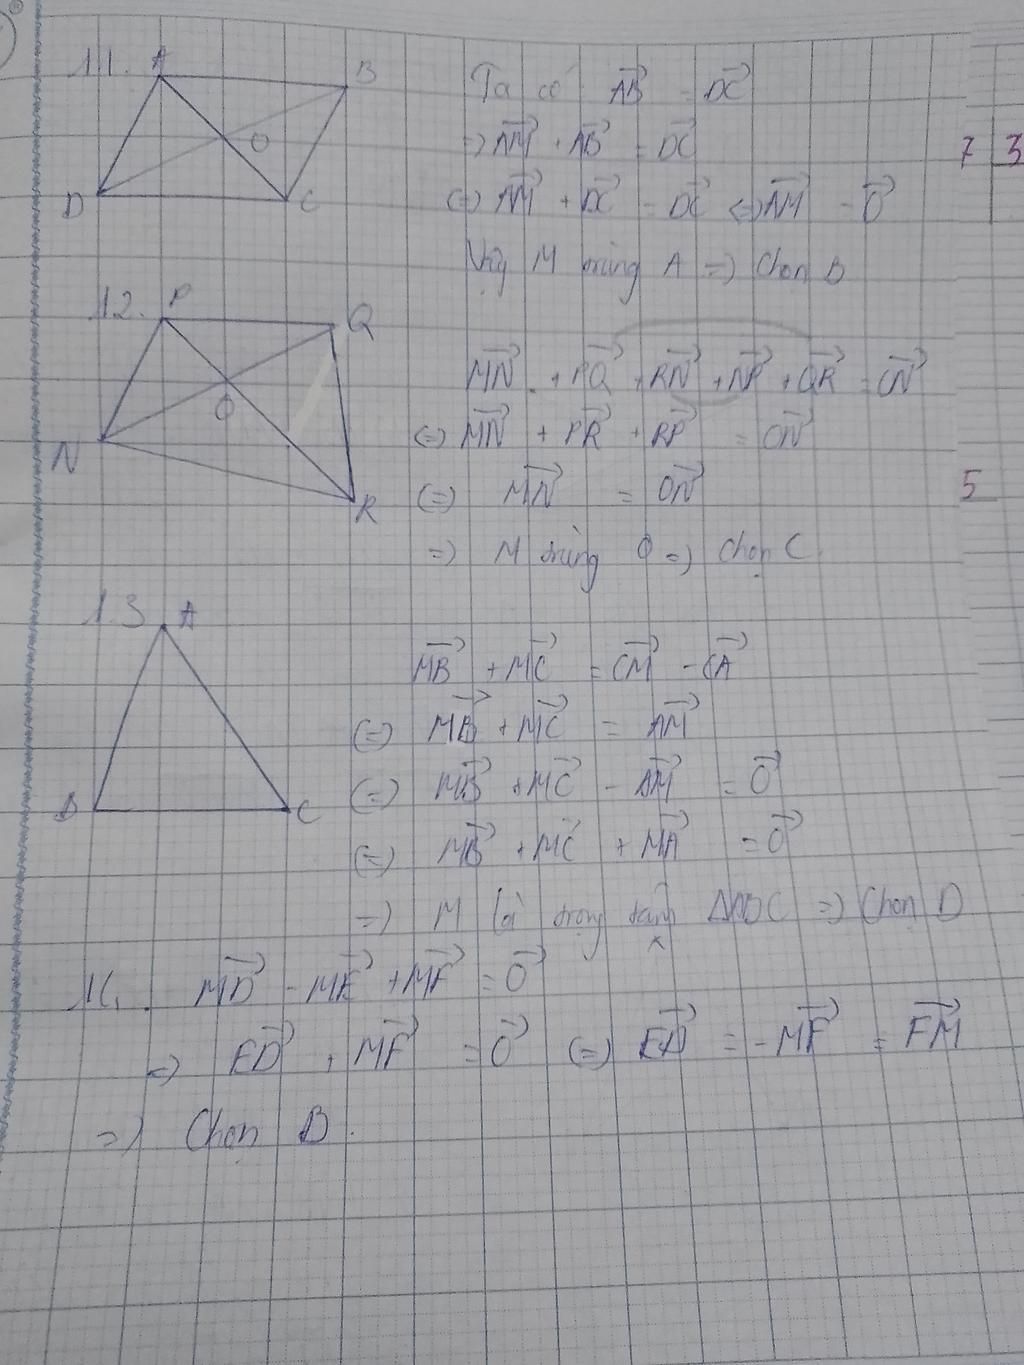 11. A B
Ta có AB→ = DC→
O
=> AM→ + AB→ = DC→
7 3
D C
<=> AM→ + DC→ = DC→ <=> AM→ = 0→
Vậy M trùng A => Chọn D
12. P Q
MN→ + PQ→ + RN→ + NP→ + QR→ = ON→
O
N
<=> MN→ + PR→ + RP→ = ON→
<=> MN→ = ON→
5
R
=> M trùng O => Chọn C
13 A
MB→ + MC→ = CM→ - CA→
<=> MB→ + MC→ = AM→
<=> MB→ + MC→ - AM→ = 0→
B C
<=> MB→ + MC→ + MA→ = 0→
=> M là trọng tâm ΔABC => Chọn D
MD→ - ME→ + MF→ = 0→
=> ED→ + MF→ = 0→ <=> ED→ = -MF→ = FM→
=> Chọn B.